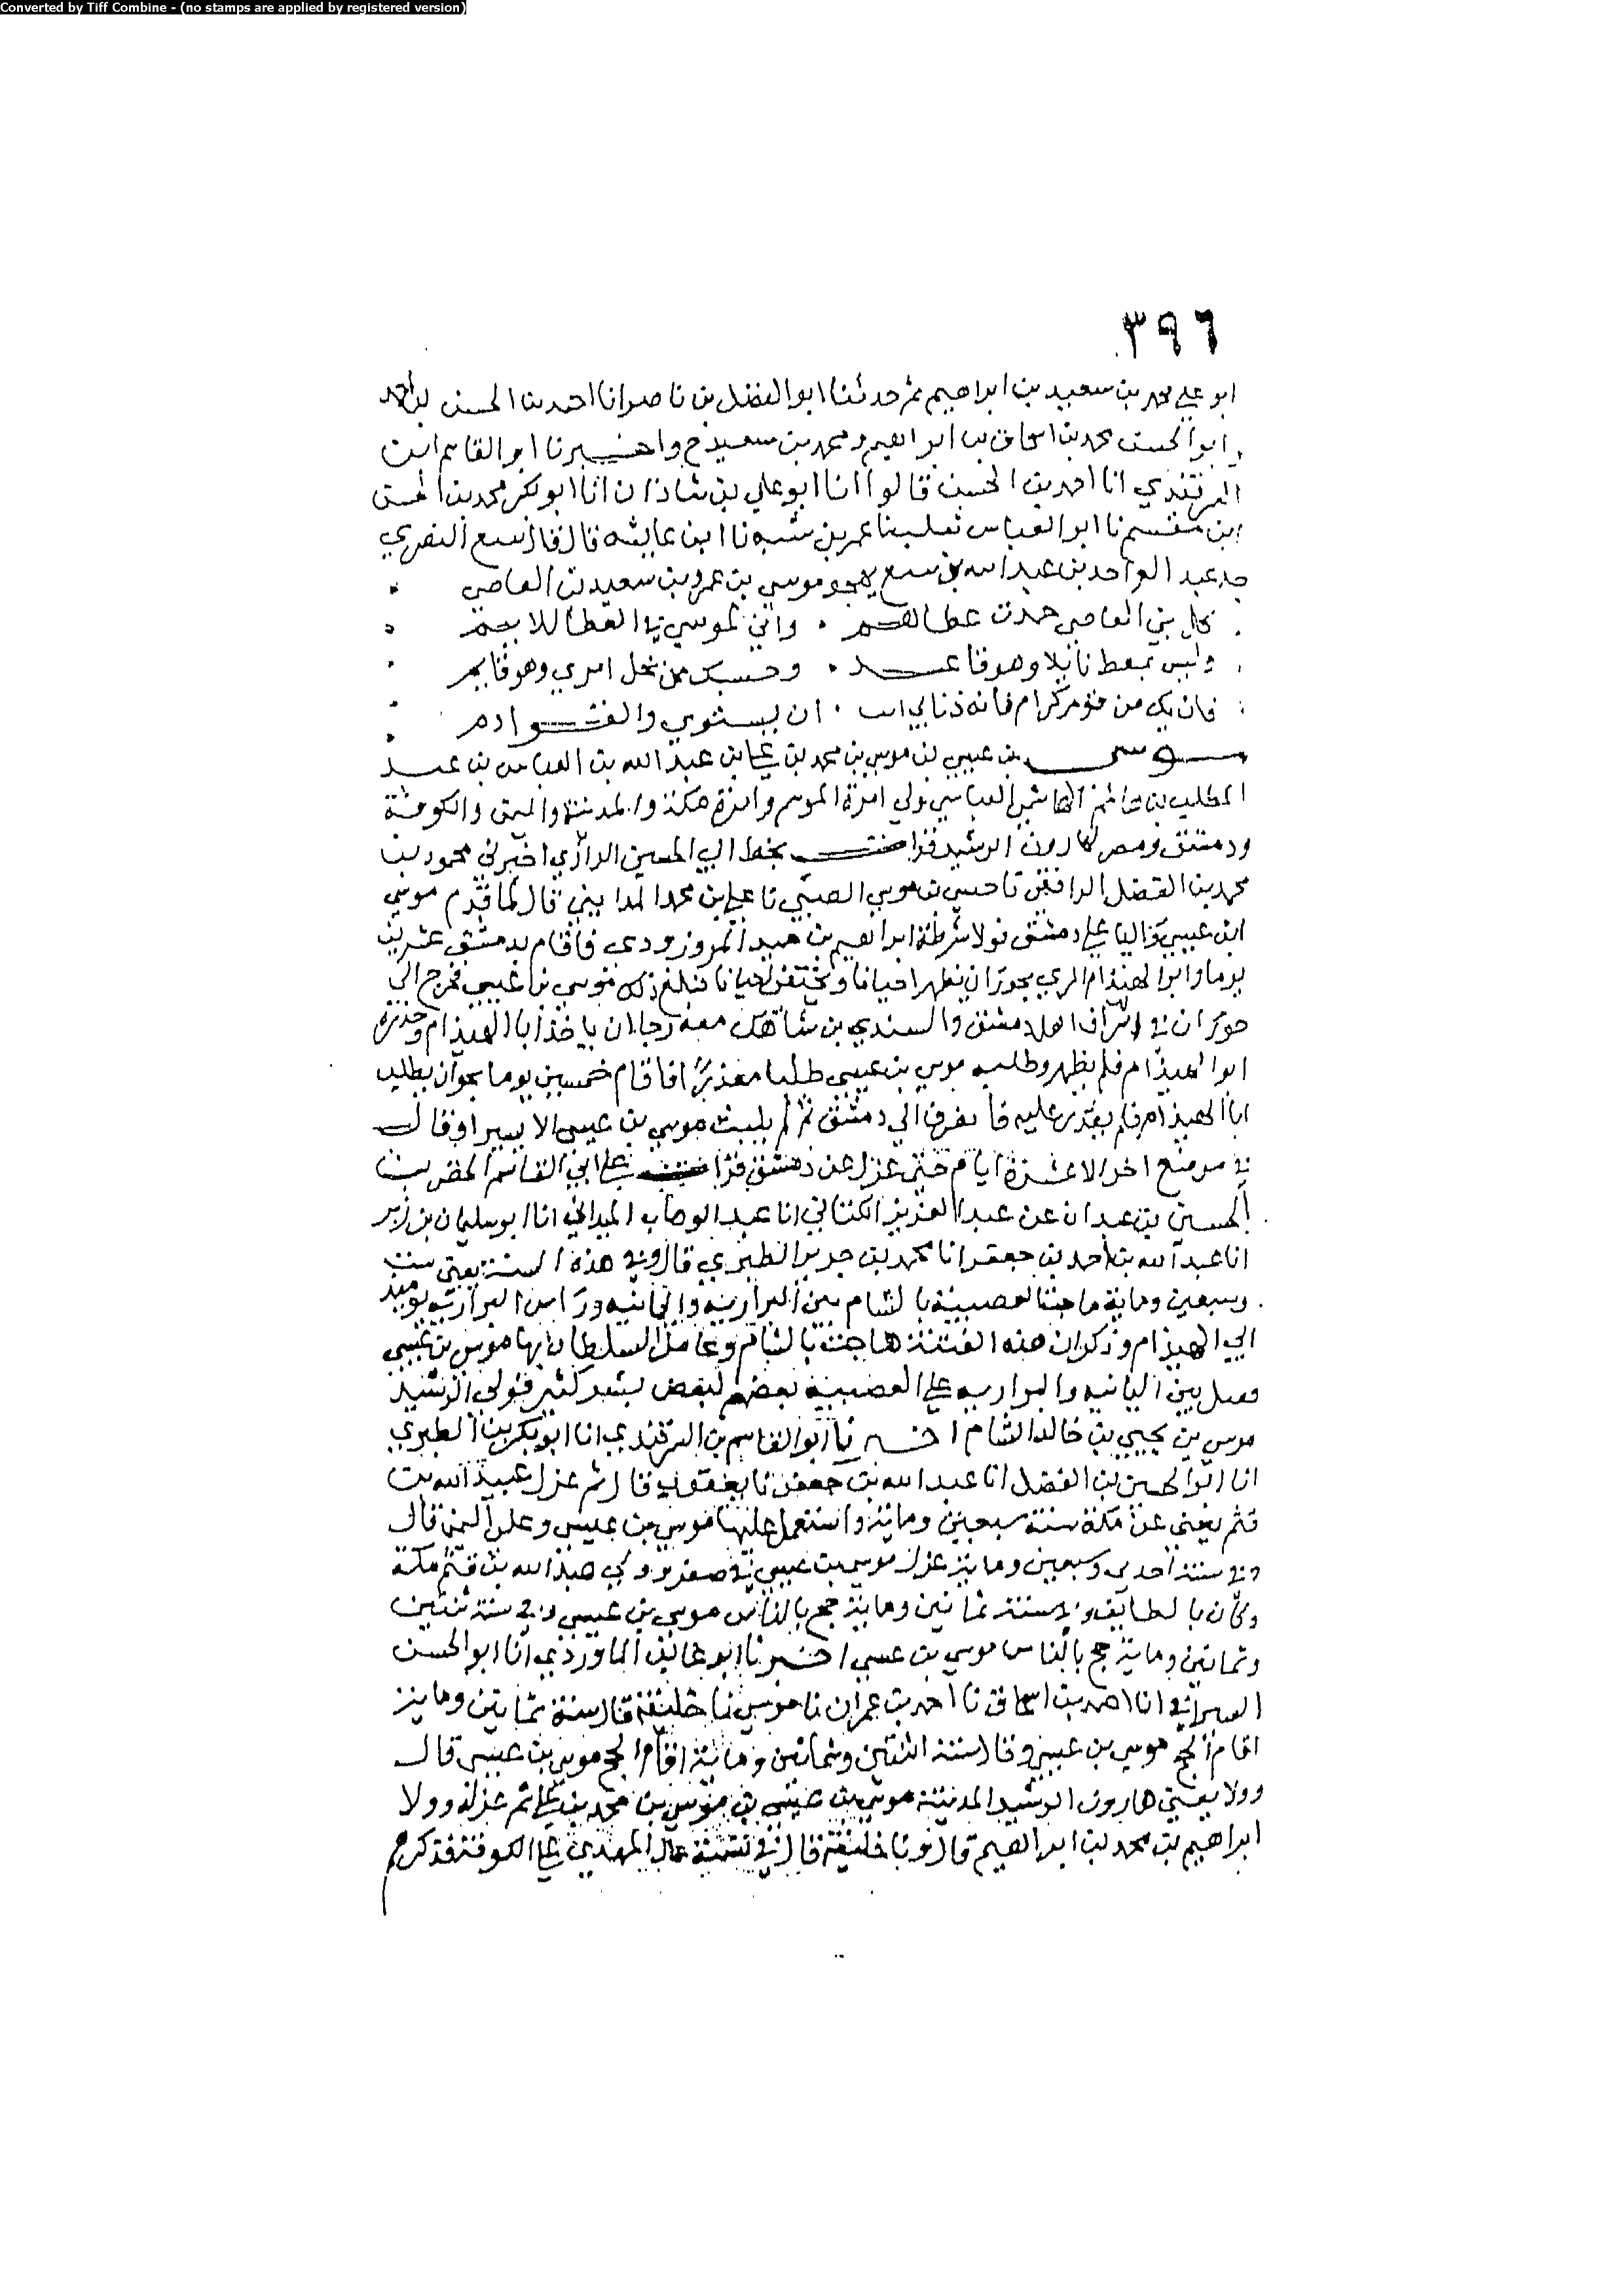 Converted by Tiff Combine - (no stamps are applied by registered version)
٣٩٦
ابو علي محمد بن سعيد بن ابراهيم ثم حدثنا ابو الفضل بن ناصر انا احمد بن الحسن بن احمد
وابو الحسن محمد بن اسحاق بن ابراهيم ومحمد بن سعيد ح واخبرنا ابو القاسم ابن
السمرقندي انا احمد بن الحسن قالوا انا ابو علي بن شاذان انا ابو بكر محمد بن الحسن
ابن مقسم نا ابو العباس ثعلب نا عمر بن شبه نا ابن عايشه قال قال سبع النصري
جد عبد الواحد بن عبد الله بن سبع يهجو موسي بن عمرو بن سعيد بن العاصي
كل بني العاصي حمدت عطاهم واني لموسي في العطا للايم
وليس بمعط نايلا وهو قاعد وحسبك من بخل امري وهو قايم
فان يك من قوم كرام فانه ذنابي ابت ان يستوي والقوادم
موسى بن عيسي بن موسي بن محمد بن علي بن عبد الله بن العباس بن عبد
المطلب بن هاشم الهاشمي العباسي ولي امرة الموسم وامرة مكة والمدينة واليمن والكوفة
ودمشق ومصر لهارون الرشيد قرات بخط ابي الحسين الرازي اخبرني محمود بن
محمد بن الفضل الرافقي نا حبيش بن موسي الضبي نا علي بن محمد المدايني قال لما قدم موسي
ابن عيسي واليا علي دمشق فولا شرطته ابراهيم بن حميد المروزودي فاقام بدمشق عشرين
يوما وابو الهيذام المري بحوران يظهر احيانا ويختفي احيانا فبلغ ذلك موسي بن عيسي فخرج الي
حوران في اشراف اهل دمشق والسندي بن شاهك معه رجا ان ياخذ ابا الهيذام وحذره
ابو الهيذام فلم يظهر وطلبه موسي بن عيسي طلبا معذرا فاقام خمسين يوما بحوران يطلب
ابا الهيذام فلم يقدر عليه فانصرف الي دمشق ثم لم يلبث موسي بن عيسي الا يسيرا وقال
في موضع اخر الا عشرة ايام حتي عزل عن دمشق قرات علي ابي القاسم الخضر بن
الحسين بن عبدان عن عبد العزيز الكتاني انا عبد الوهاب الميداني انا ابو سليمان بن زبر
انا عبد الله بن احمد بن جعفر انا محمد بن جرير الطبري قال وفي هذه السنة يعني ست
وسبعين وماية هاجت العصبية بالشام بين النزارية واليمانية وراس النزارية يوميذ
ابي الهيذام وذكر ان هذه الفتنة هاجت بالشام وعامل السلطان بها موسي بن عيسي
فقتل بين اليمانيه والنزاريه علي العصبية بعضهم لبعض بشر كثير فولي الرشيد
موسي بن يحيي بن خالد الشام اخبرنا ابو القاسم بن السمرقندي انا ابو بكر بن الطبري
انا ابو الحسين بن الفضل انا عبد الله بن جعفر نا يعقوب قال ثم عزل عبيد الله بن
قثم يعني عن مكة سنة سبعين وماية واستعمل عليها موسي بن عيسي وعلي اليمن قال
وفي سنة احدي وسبعين وماية عزل موسي بن عيسي في صفر وولي عبد الله بن قثم مكة
وكان بالطايف وفي سنة ثمانين وماية حج بالناس موسي بن عيسي وفي سنة ثنتين
وثمانين وماية حج بالناس موسي بن عيسي اخبرنا ابو غالب الماوردي انا ابو الحسن
السيرافي انا احمد بن اسحاق نا احمد بن عمران نا موسي نا خليفة قال سنة ثمانين وماية
اقام الحج موسي بن عيسي وقال سنة اثنتين وثمانين وماية اقام الحج موسي بن عيسي قال
وولا يعني هارون الرشيد المدينة موسي بن عيسي بن موسي بن محمد بن علي ثم عزله وولا
ابراهيم بن محمد بن ابراهيم قال ونا خليفة قال في تسمية عمال المهدي علي الكوفة فذكرهم